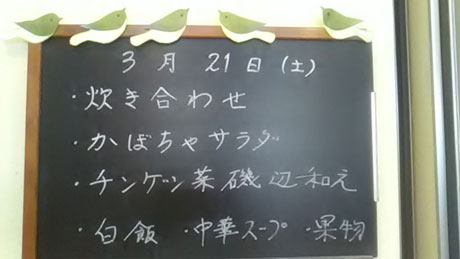 3月21日(土)
・炊き合わせ
・かぼちゃサラダ
・チンゲン菜磯辺和え
・白飯 ・中華スープ ・果物